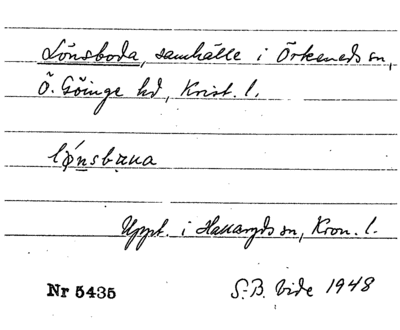 Lönsboda, samhälle i Örkeneds sn,
Ö. Göinge hd, Krist. l.
lǿnsbɷna
Uppt. i Hallaryds sn, Kron. l.
Nr 5435 S.-B. Vide 1948